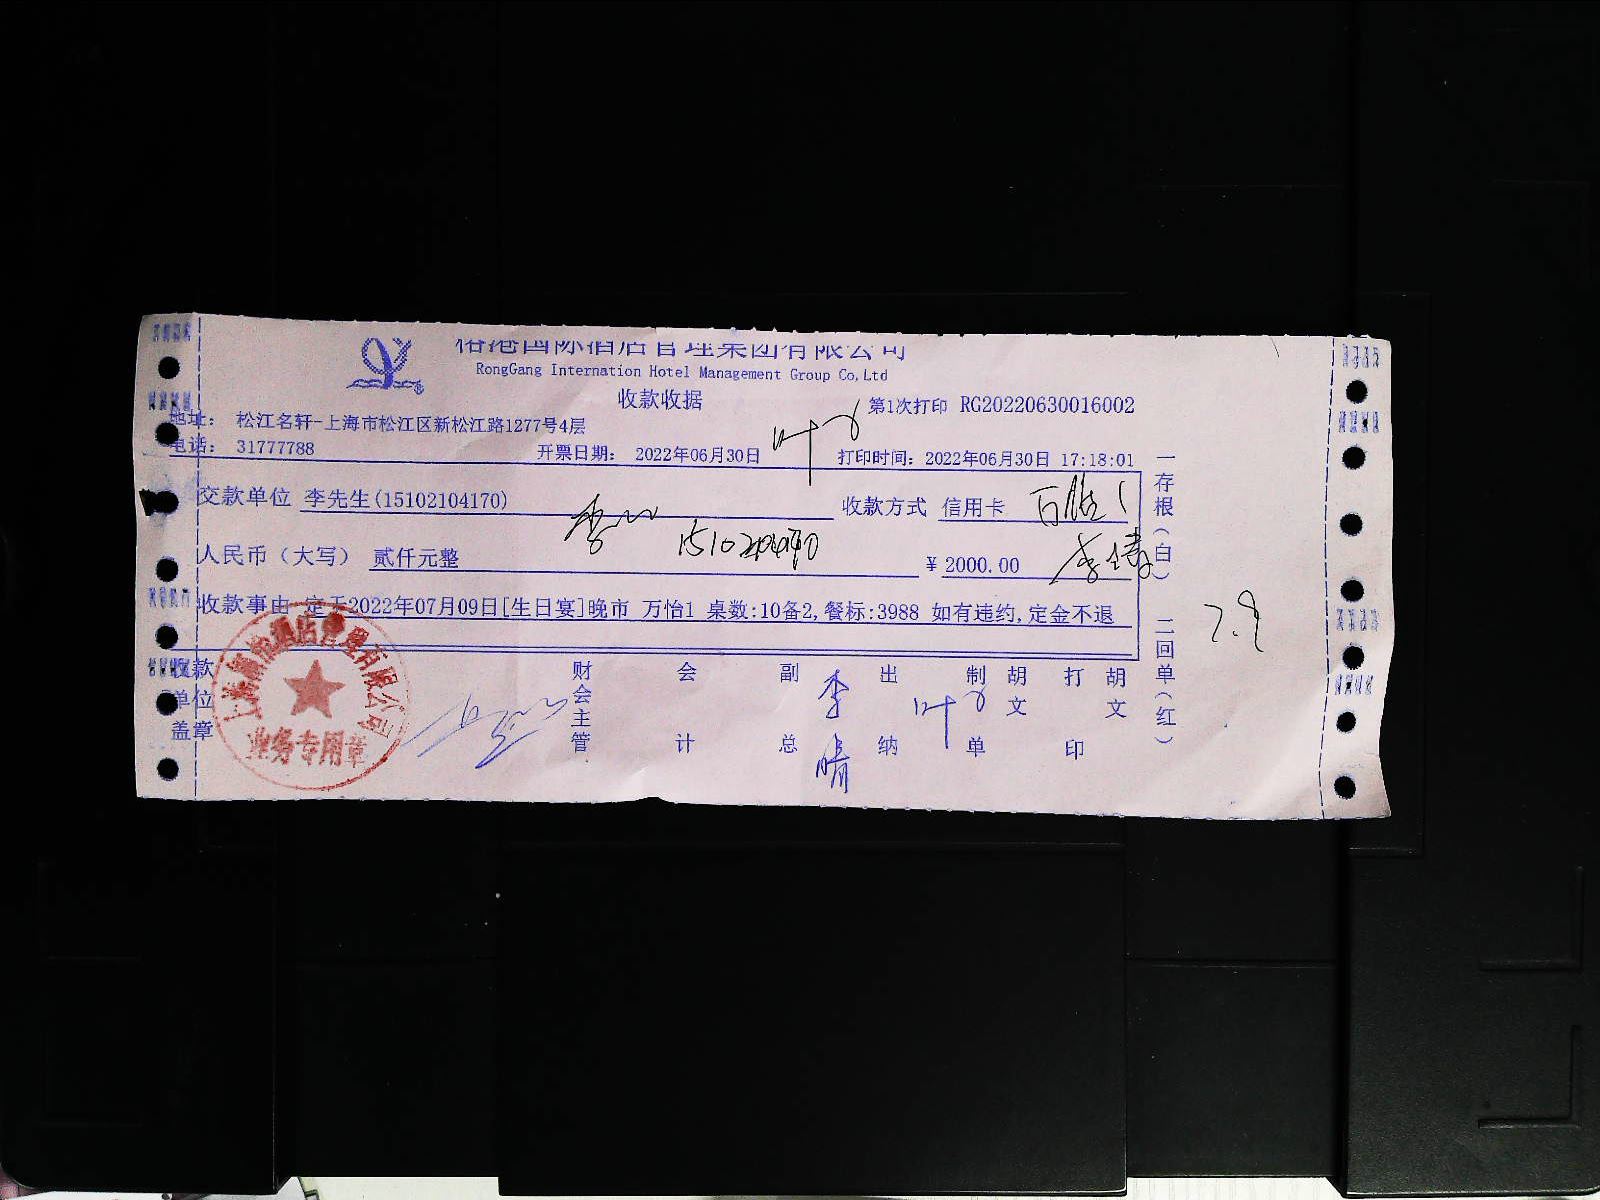 榕港国际酒店管理集团有限公司
RongGang Internation Hotel Management Group Co,Ltd
收款收据
第1次打印 RG20220630016002
地址: 松江名轩-上海市松江区新松江路1277号4层
电话: 31777788
开票日期: 2022年06月30日
打印时间: 2022年06月30日 17:18:01
交款单位 李先生(15102104170)
收款方式 信用卡
人民币（大写） 贰仟元整
¥2000.00
收款事由 定于2022年07月09日[生日宴]晚市 万怡1 桌数:10备2,餐标:3988 如有违约,定金不退
7.9
一存根(白) 二回单(红)
收款单位盖章
业务专用章
财会主管
会计
副总
李
出纳
叶
制单
胡文
打印
胡文